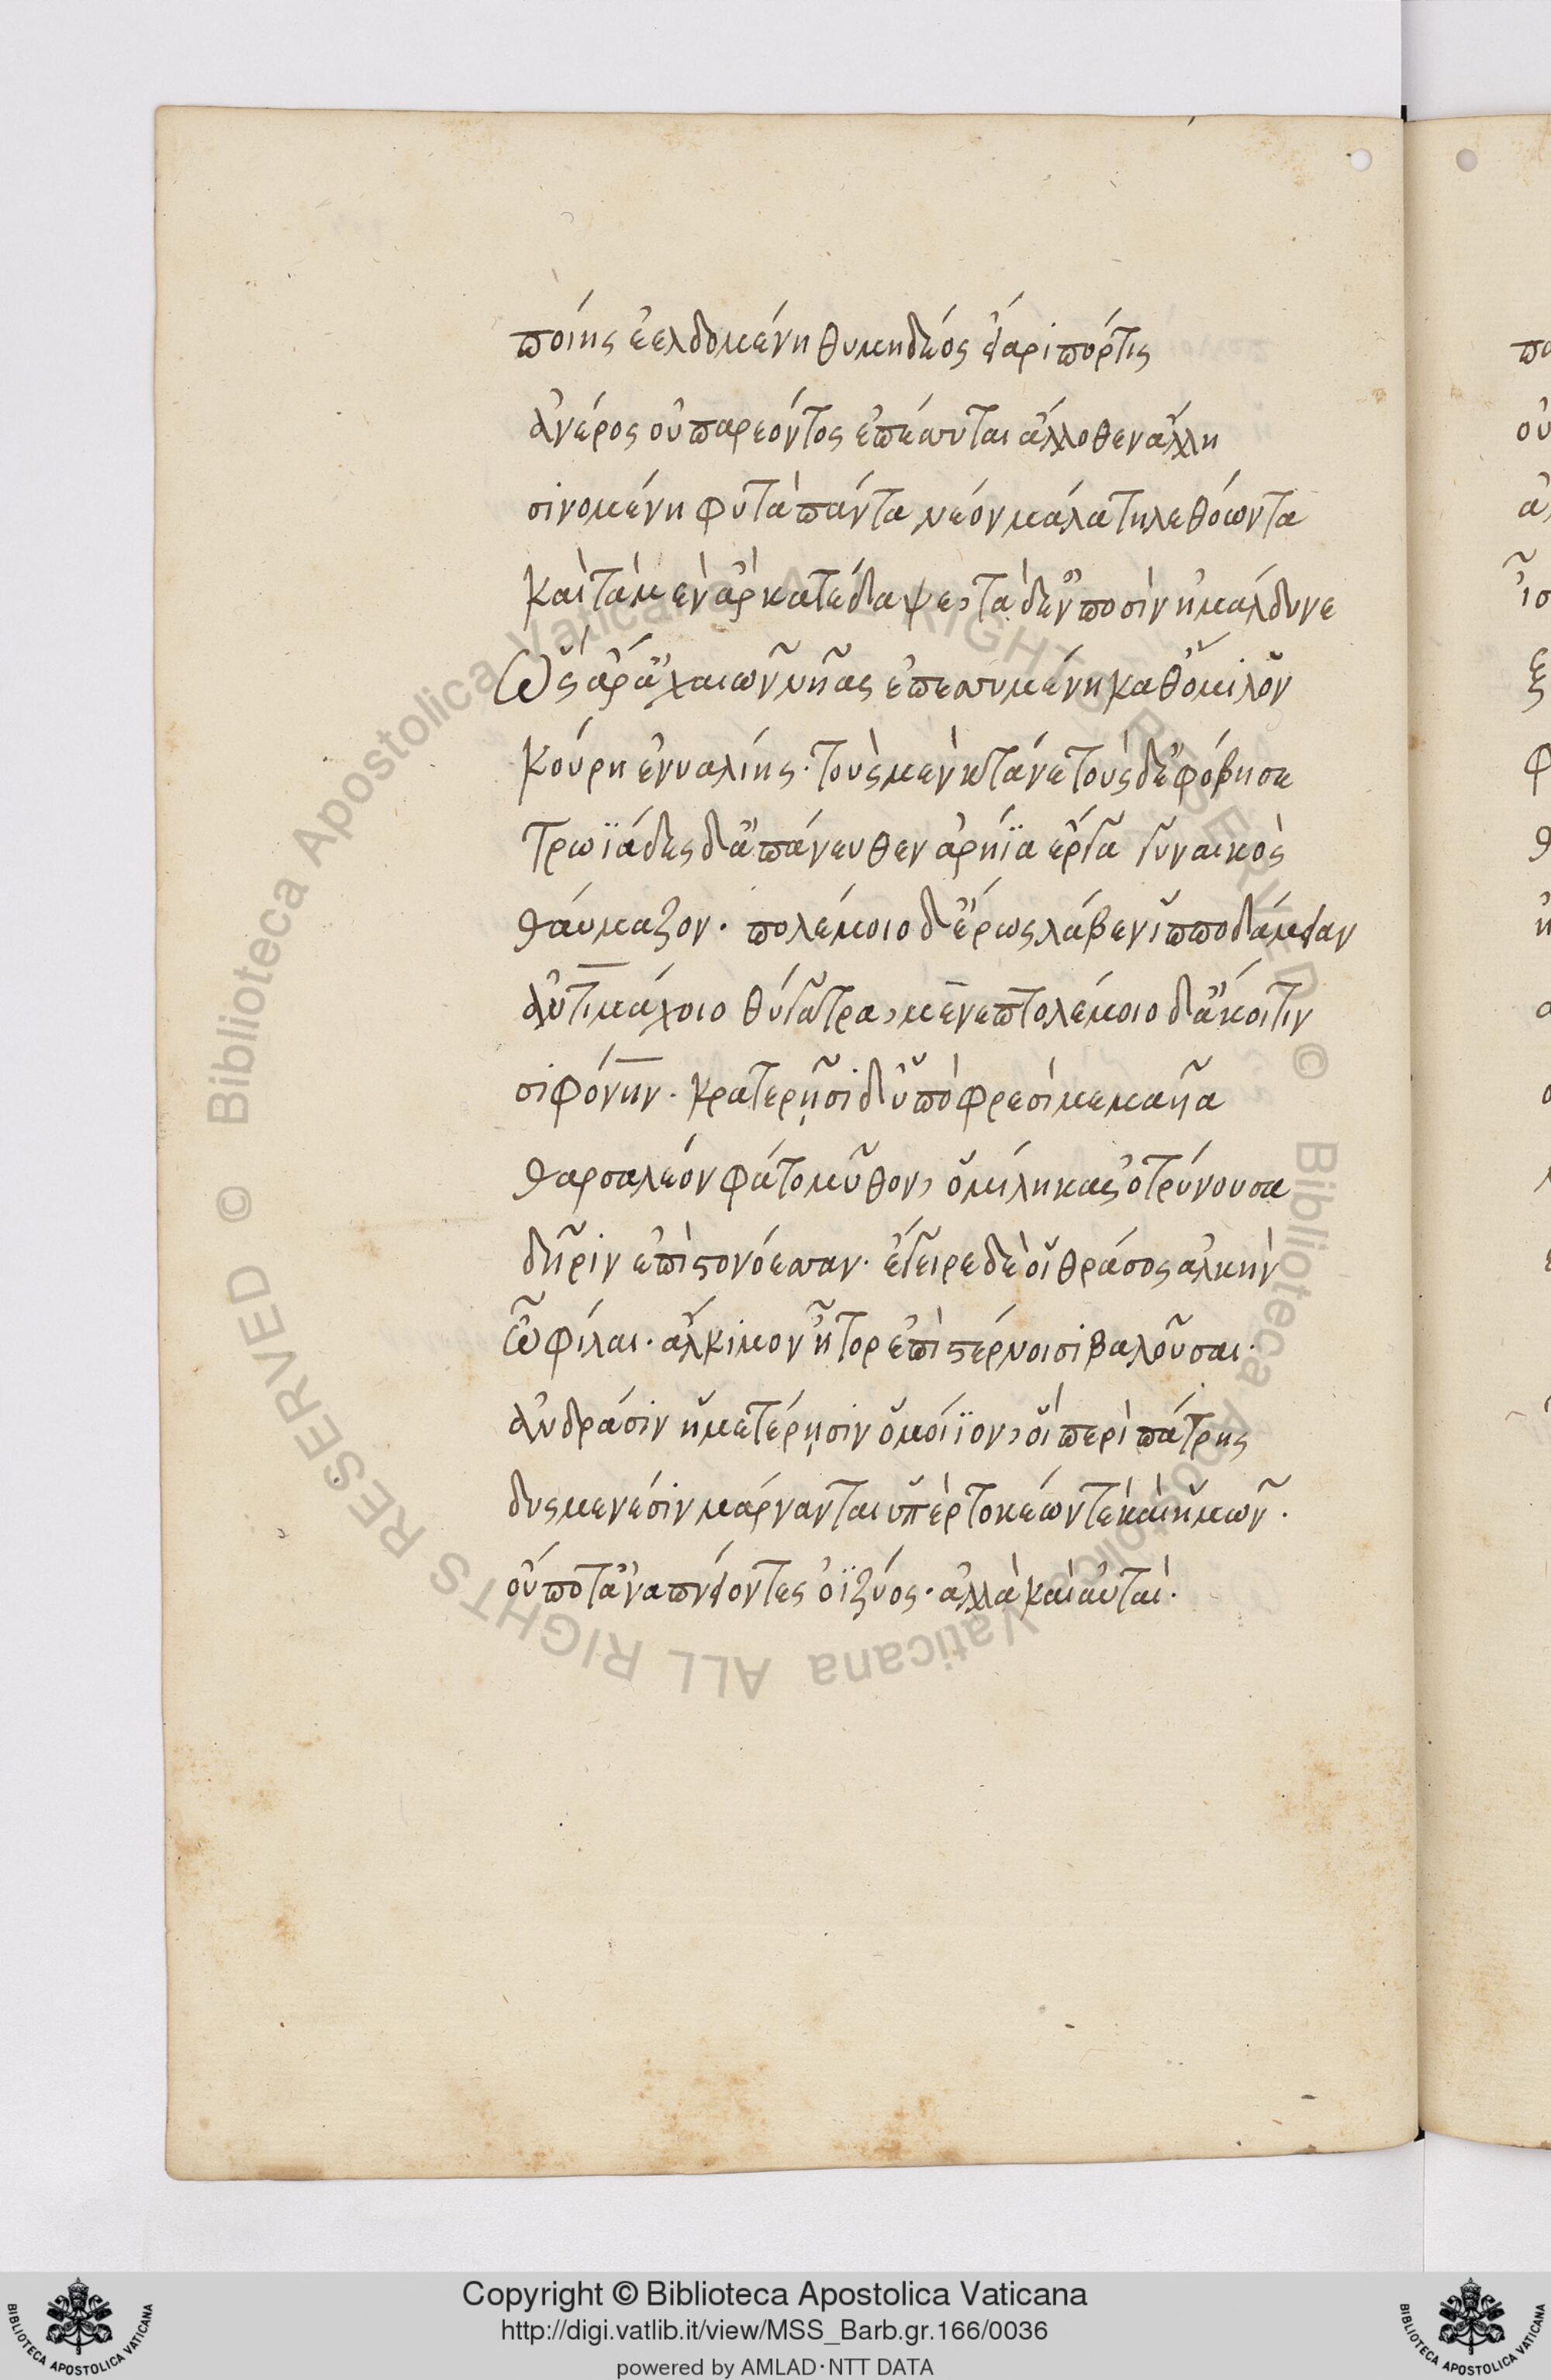 ποίης ἐελδομένη θυμηδέος εἴαρι πόρτις
ἀνέρος οὐ παρεόντος ἐπέσσυται ἄλλοθεν ἄλλη
σινομένη φυτὰ πάντα νέον μάλα τηλεθόωντα
καὶ τὰ μὲν ἂρ κατέδαψε, τὰ δ' ἐν ποσὶν ἠμάλδυνε
Ὣς ἄρ' ἀχαιῶν υἷας ἐπεσσυμένη καθ' ὅμιλον
κούρη ἐνυαλίης· τοὺς μὲν κτάνε τοὺς δ' ἐφόβησε
Τρωϊάδες δ' ἀπάνευθεν ἀρήϊα ἔργα γυναικὸς
θαύμαζον· πολέμοιο δ' ἔρως λάβεν ἱπποδάμειαν
ἀντιμάχοιο θύγατρα, μενεπτολέμοιο δ' ἄκοιτιν
σιφόνην· κρατερῇσι δ' ὑπὸ φρεσὶ μεμαυῖα
θαρσαλέον φάτο μῦθον, ὁμήλικας ὀτρύνουσα
δῆριν ἐπὶ στονόεσσαν· ἔγειρε δέ οἱ θράσος ἀλκὴν
ὦ φίλαι· ἄλκιμον ἦτορ ἐπὶ στέρνοισι βαλοῦσαι·
ἀνδράσιν ἡμετέρῃσιν ὁμοίϊον, οἳ περὶ πάτρης
δυσμενέσιν μάρνανται ὑπὲρ τοκέων τε καὶ ἡμῶν·
οὔποτ' ἀναπνείοντες ὀϊζύος· ἀλλὰ καὶ αὐταὶ·
Copyright © Biblioteca Apostolica Vaticana
http://digi.vatlib.it/view/MSS_Barb.gr.166/0036
powered by AMLAD·NTT DATA